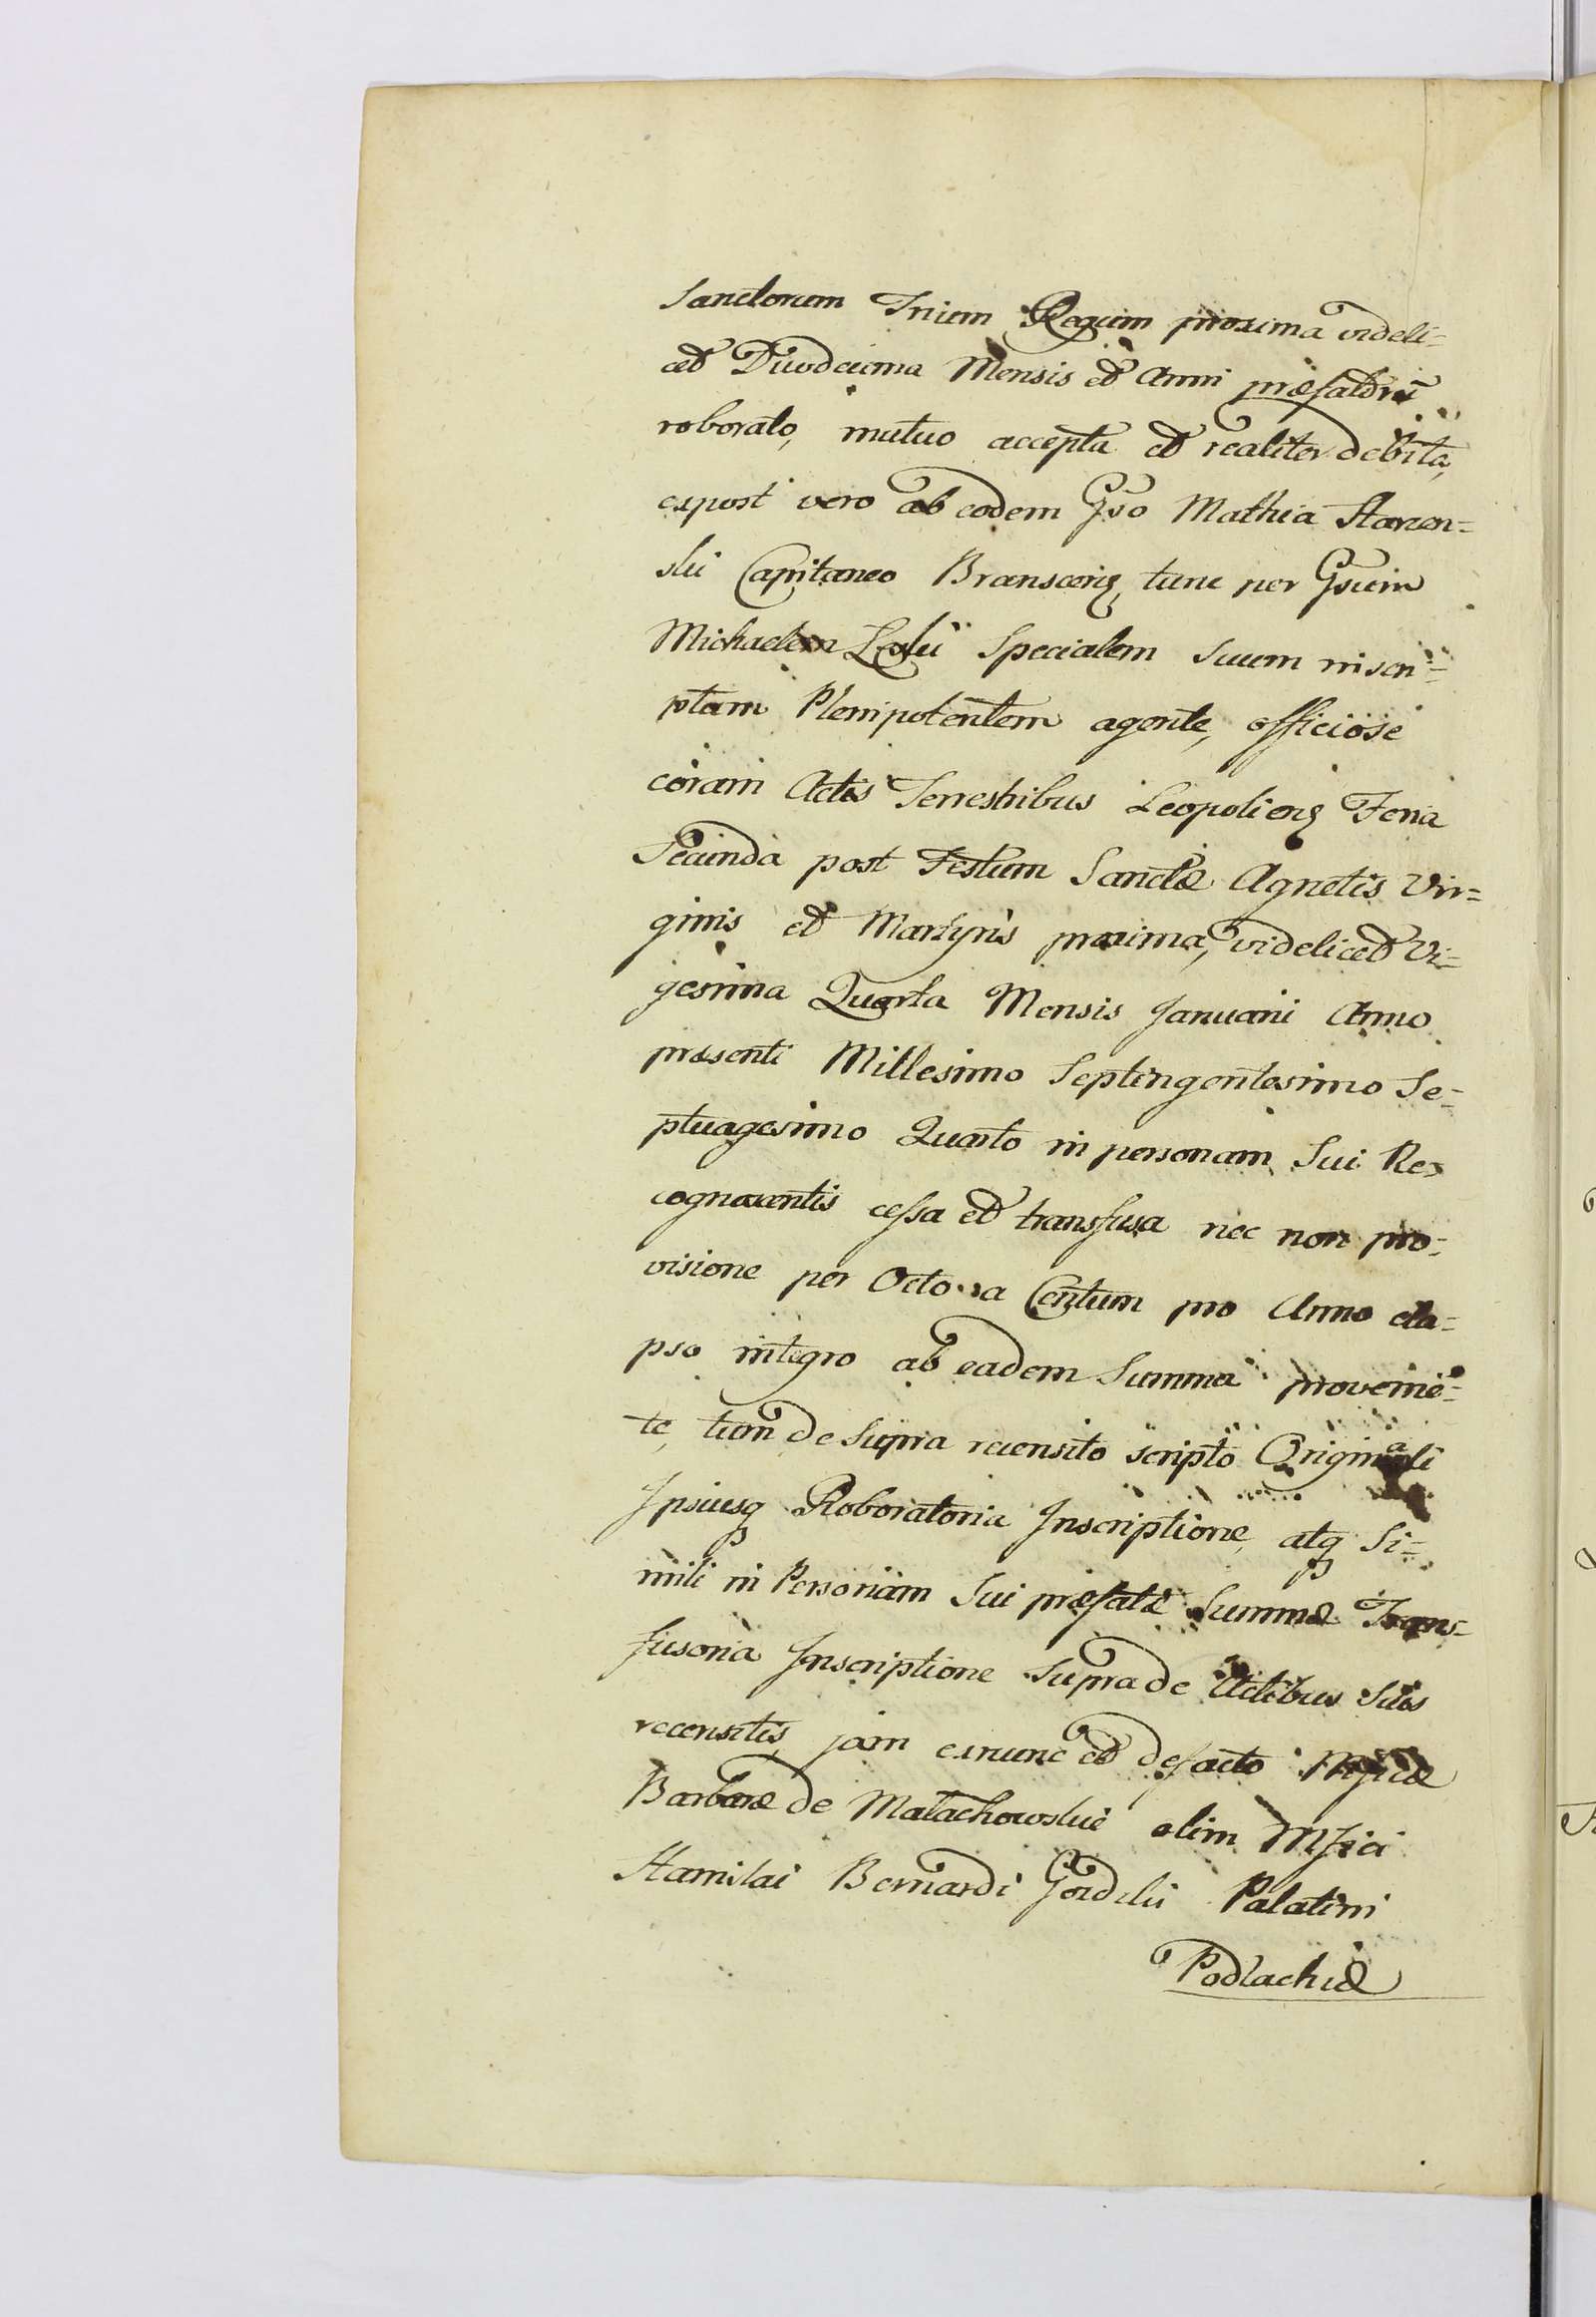 Sanctorum Trium Regum proxima videli=
cet Duodecima Mensis et Anni præfatorū
roborato, mutuo accepta et realiter debita,
expost vero ab eodem Gso Mathia Starzen=
ski Capitaneo Branscens, tunc per Gsum
Michaelem Specialem Suum inscri=
ptum Plenipotentem agente, officiose
coram Actis Terrestribus Leopoliens Feria
Secunda post Festum Sanctæ Agnetis Vir=
ginis et Martyris proxima, videlicet Vi=
gesima Quarta Mensis Januarii Anno
præsenti Millesimo Septingentesimo Se=
ptuagesimo Quarto in personam Sui Re=
cognoscentis cessa et transfusa nec non pro=
visione per Octo a Centum pro Anno ela=
pso integro ab eadem Summa provenie=
te, tum de supra recensito scripto Originali
Ipsiusq Roboratoria Inscriptione, atq Si=
mili in Personam Sui præfatæ Summæ Trans=
fusoria Inscriptione Supra de Actibus Suis
recensitis, jam exnunc et defacto Mficæ
Barbaræ de Małachowskie olim Mfici
Stanislai Bernardi Gozdzki Palatini
Podlachiæ